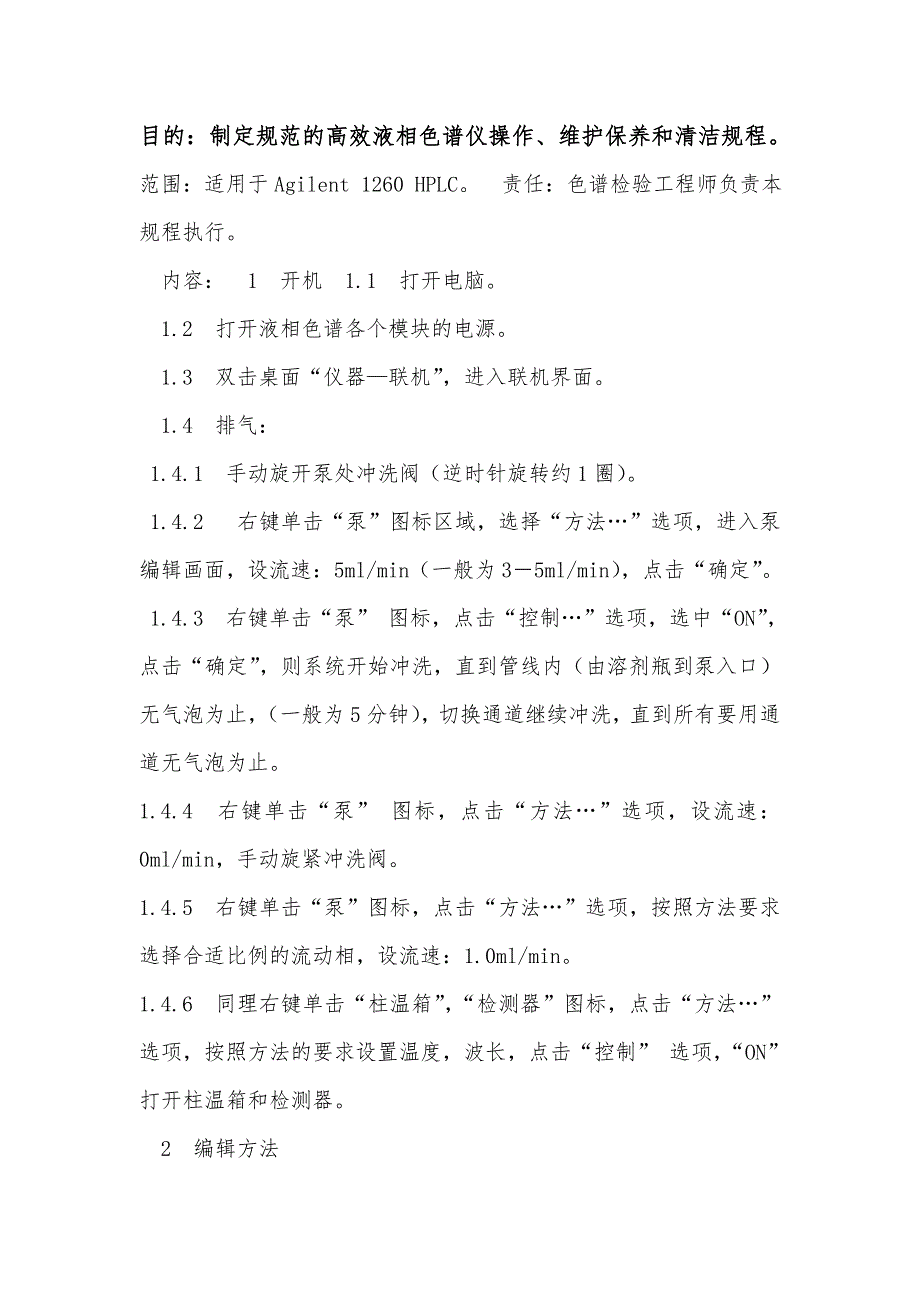 目的：制定规范的高效液相色谱仪操作、维护保养和清洁规程。
范围：适用于Agilent 1260 HPLC。 责任：色谱检验工程师负责本
规程执行。
内容： 1 开机 1.1 打开电脑。
1.2 打开液相色谱各个模块的电源。
1.3 双击桌面“仪器—联机”，进入联机界面。
1.4 排气：
1.4.1 手动旋开泵处冲洗阀（逆时针旋转约1圈）。
1.4.2 右键单击“泵”图标区域，选择“方法…”选项，进入泵
编辑画面，设流速：5ml/min（一般为3－5ml/min），点击“确定”。
1.4.3 右键单击“泵” 图标，点击“控制…”选项，选中“ON”，
点击“确定”，则系统开始冲洗，直到管线内（由溶剂瓶到泵入口）
无气泡为止，（一般为5分钟），切换通道继续冲洗，直到所有要用通
道无气泡为止。
1.4.4 右键单击“泵” 图标，点击“方法…”选项，设流速：
0ml/min，手动旋紧冲洗阀。
1.4.5 右键单击“泵”图标，点击“方法…”选项，按照方法要求
选择合适比例的流动相，设流速：1.0ml/min。
1.4.6 同理右键单击“柱温箱”，“检测器”图标，点击“方法…”
选项，按照方法的要求设置温度，波长，点击“控制” 选项，“ON”
打开柱温箱和检测器。
2 编辑方法